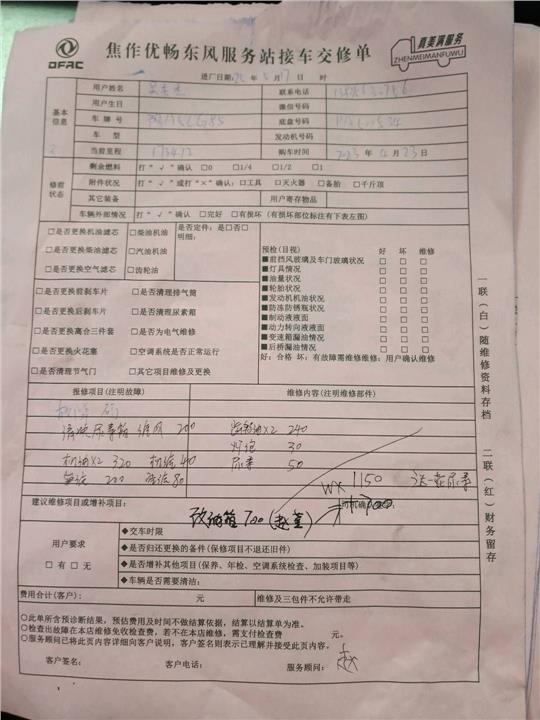 DFAC
焦作优畅东风服务站接车交修单
真美满服务
ZHENMEIMANFUWU
进厂日期: 年 5 月 17 日 时
基本信息
用户姓名 联系电话
用户生日 微信号码
车牌号 底盘号码
车型 发动机号码
当前里程 购车时间 2023 年 4 月 23 日
修前状态
剩余燃料 打“√”确认 □0 □1/4 □1/2 □1
附件状况 打“√”或打“×”确认:□工具 □灭火器 □备胎 □千斤顶
其它装备 用户寄存物品
车辆外部情况 打“√”确认 □完好 □有损坏 (有损坏部位标注有下表左图)
□是否更换机油滤芯 □柴油机油 是否定件:是□否□
明细:
□是否更换柴油滤芯 □汽油机油
□是否更换空气滤芯 □齿轮油
□是否更换前刹车片 □是否清理排气筒
□是否更换后刹车片 □是否清理尿素箱
□是否更换离合三件套 □是否为电气维修
□是否更换火花塞 □空调系统是否正常运行
□是否清理节气门 □其它项目维修及更换
预检(目视) 好 坏 维修
■前挡风玻璃及车门玻璃状况 □ □ □
■灯具情况 □ □ □
■油量状况 □ □ □
■轮胎状况 □ □ □
■发动机机油状况 □ □ □
■防冻防锈瓶状况 □ □ □
■制动液液面 □ □ □
■动力转向液液面 □ □ □
■变速箱漏油情况 □ □ □
■后桥漏油情况 □ □ □
好:合格 坏:有故障需维修维修:用户确认维修
报修项目(注明故障) 维修内容(注明维修部件)
清洗尿素箱 200 X2 240
灯泡 30
机油X2 320 机滤 40 尿素 50
200 80
WX 1150 送一桶尿素
建议维修项目或增补项目:
改油箱 700 (赵董)
用户要求
□有 □无
◆交车时限
◆是否归还更换的备件(保修项目不退还旧件)
◆是否增补其他项目(保养、年检、空调系统检查、加装项目等)
◆车辆是否需要清洁:
费用合计(客户): 元 维修及三包件不允许带走
○此单所含预诊断结果,预估费用及时间不做结算依据,结算以结算单为准。
○检查出故障在本店维修免收检查费,若不在本店维修,需支付检查费 元。
○服务顾问已将此页内容详细向客户说明,客户签名则表示已理解并接受此页内容。
客户签名: 客户电话: 服务顾问: 赵
一联(白)随维修资料存档
二联(红)财务留存